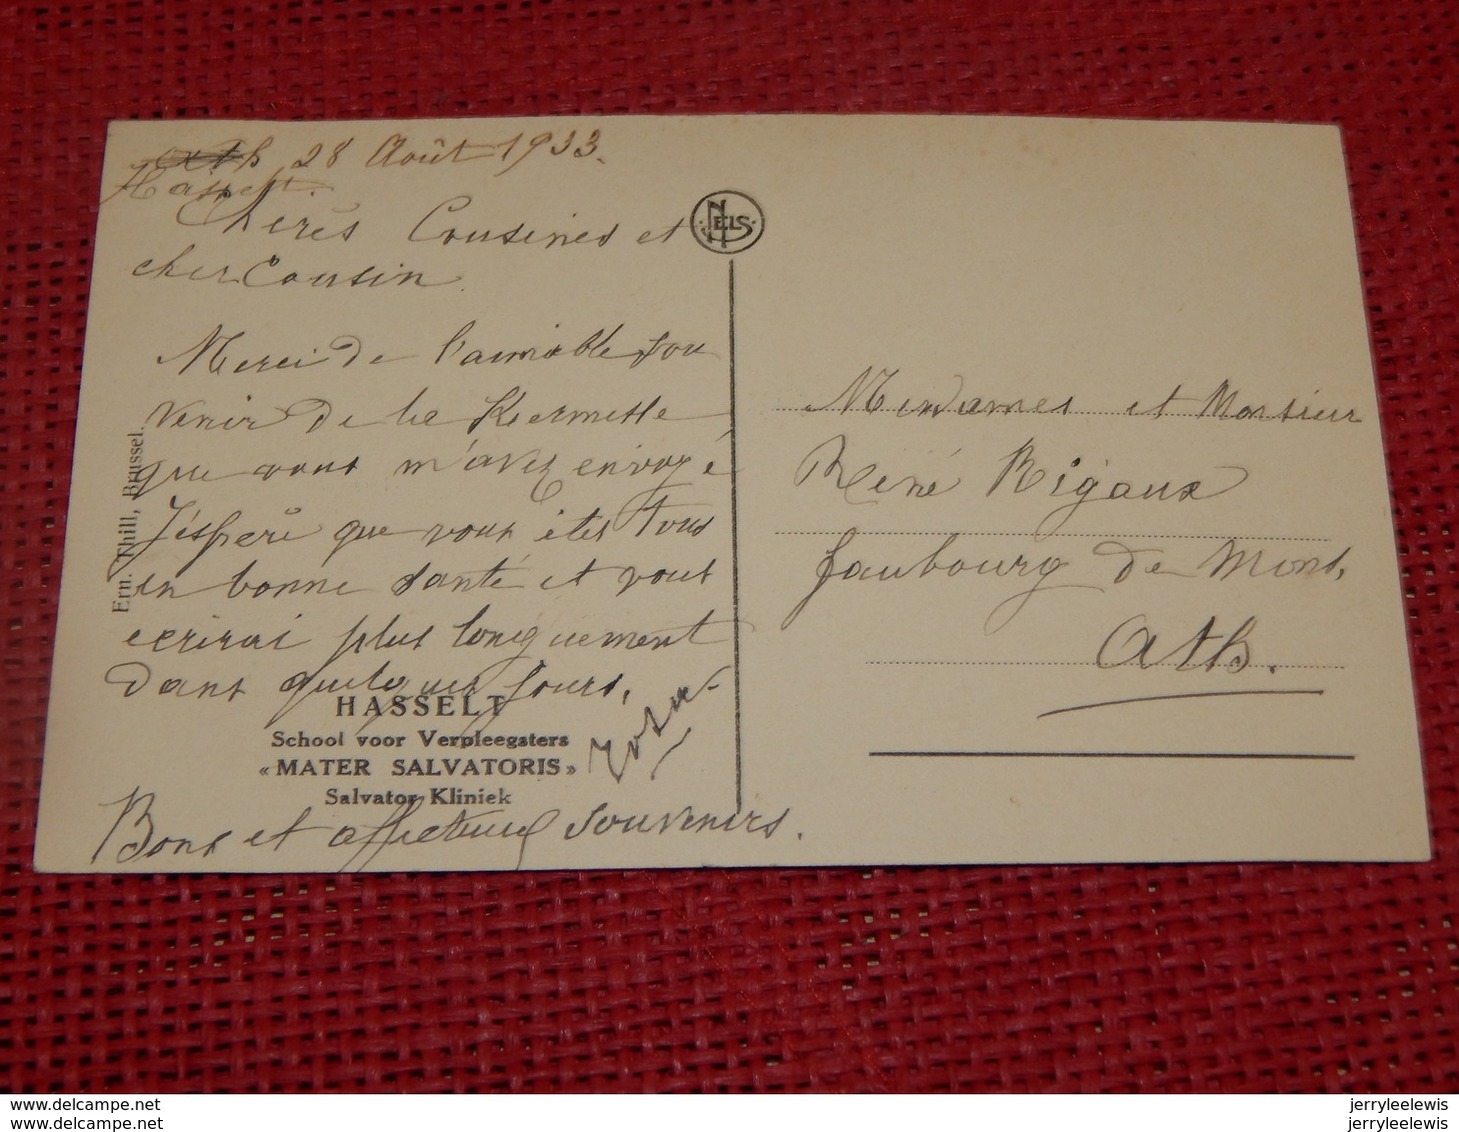 Ath, 28 Août 1933.
Hasselt
Chères Cousines et
cher Cousin
Merci de l'aimable sou
venir de la Kermesse
que vous m'avez envoyé
J'espère que vous êtes tous
en bonne santé et vous
écrirai plus longuement
dans quelques jours,
Rosa
Bons et affectueux souvenirs.
HASSELT
School voor Verpleegsters
« MATER SALVATORIS »
Salvator Kliniek
Ern. Thill, Brussel.
NELS
Mesdames et Monsieur
René Rigaux
faubourg de Mons,
Ath.
www.delcampe.net
www.delcampe.net
jerryleelewis
jerryleelewis